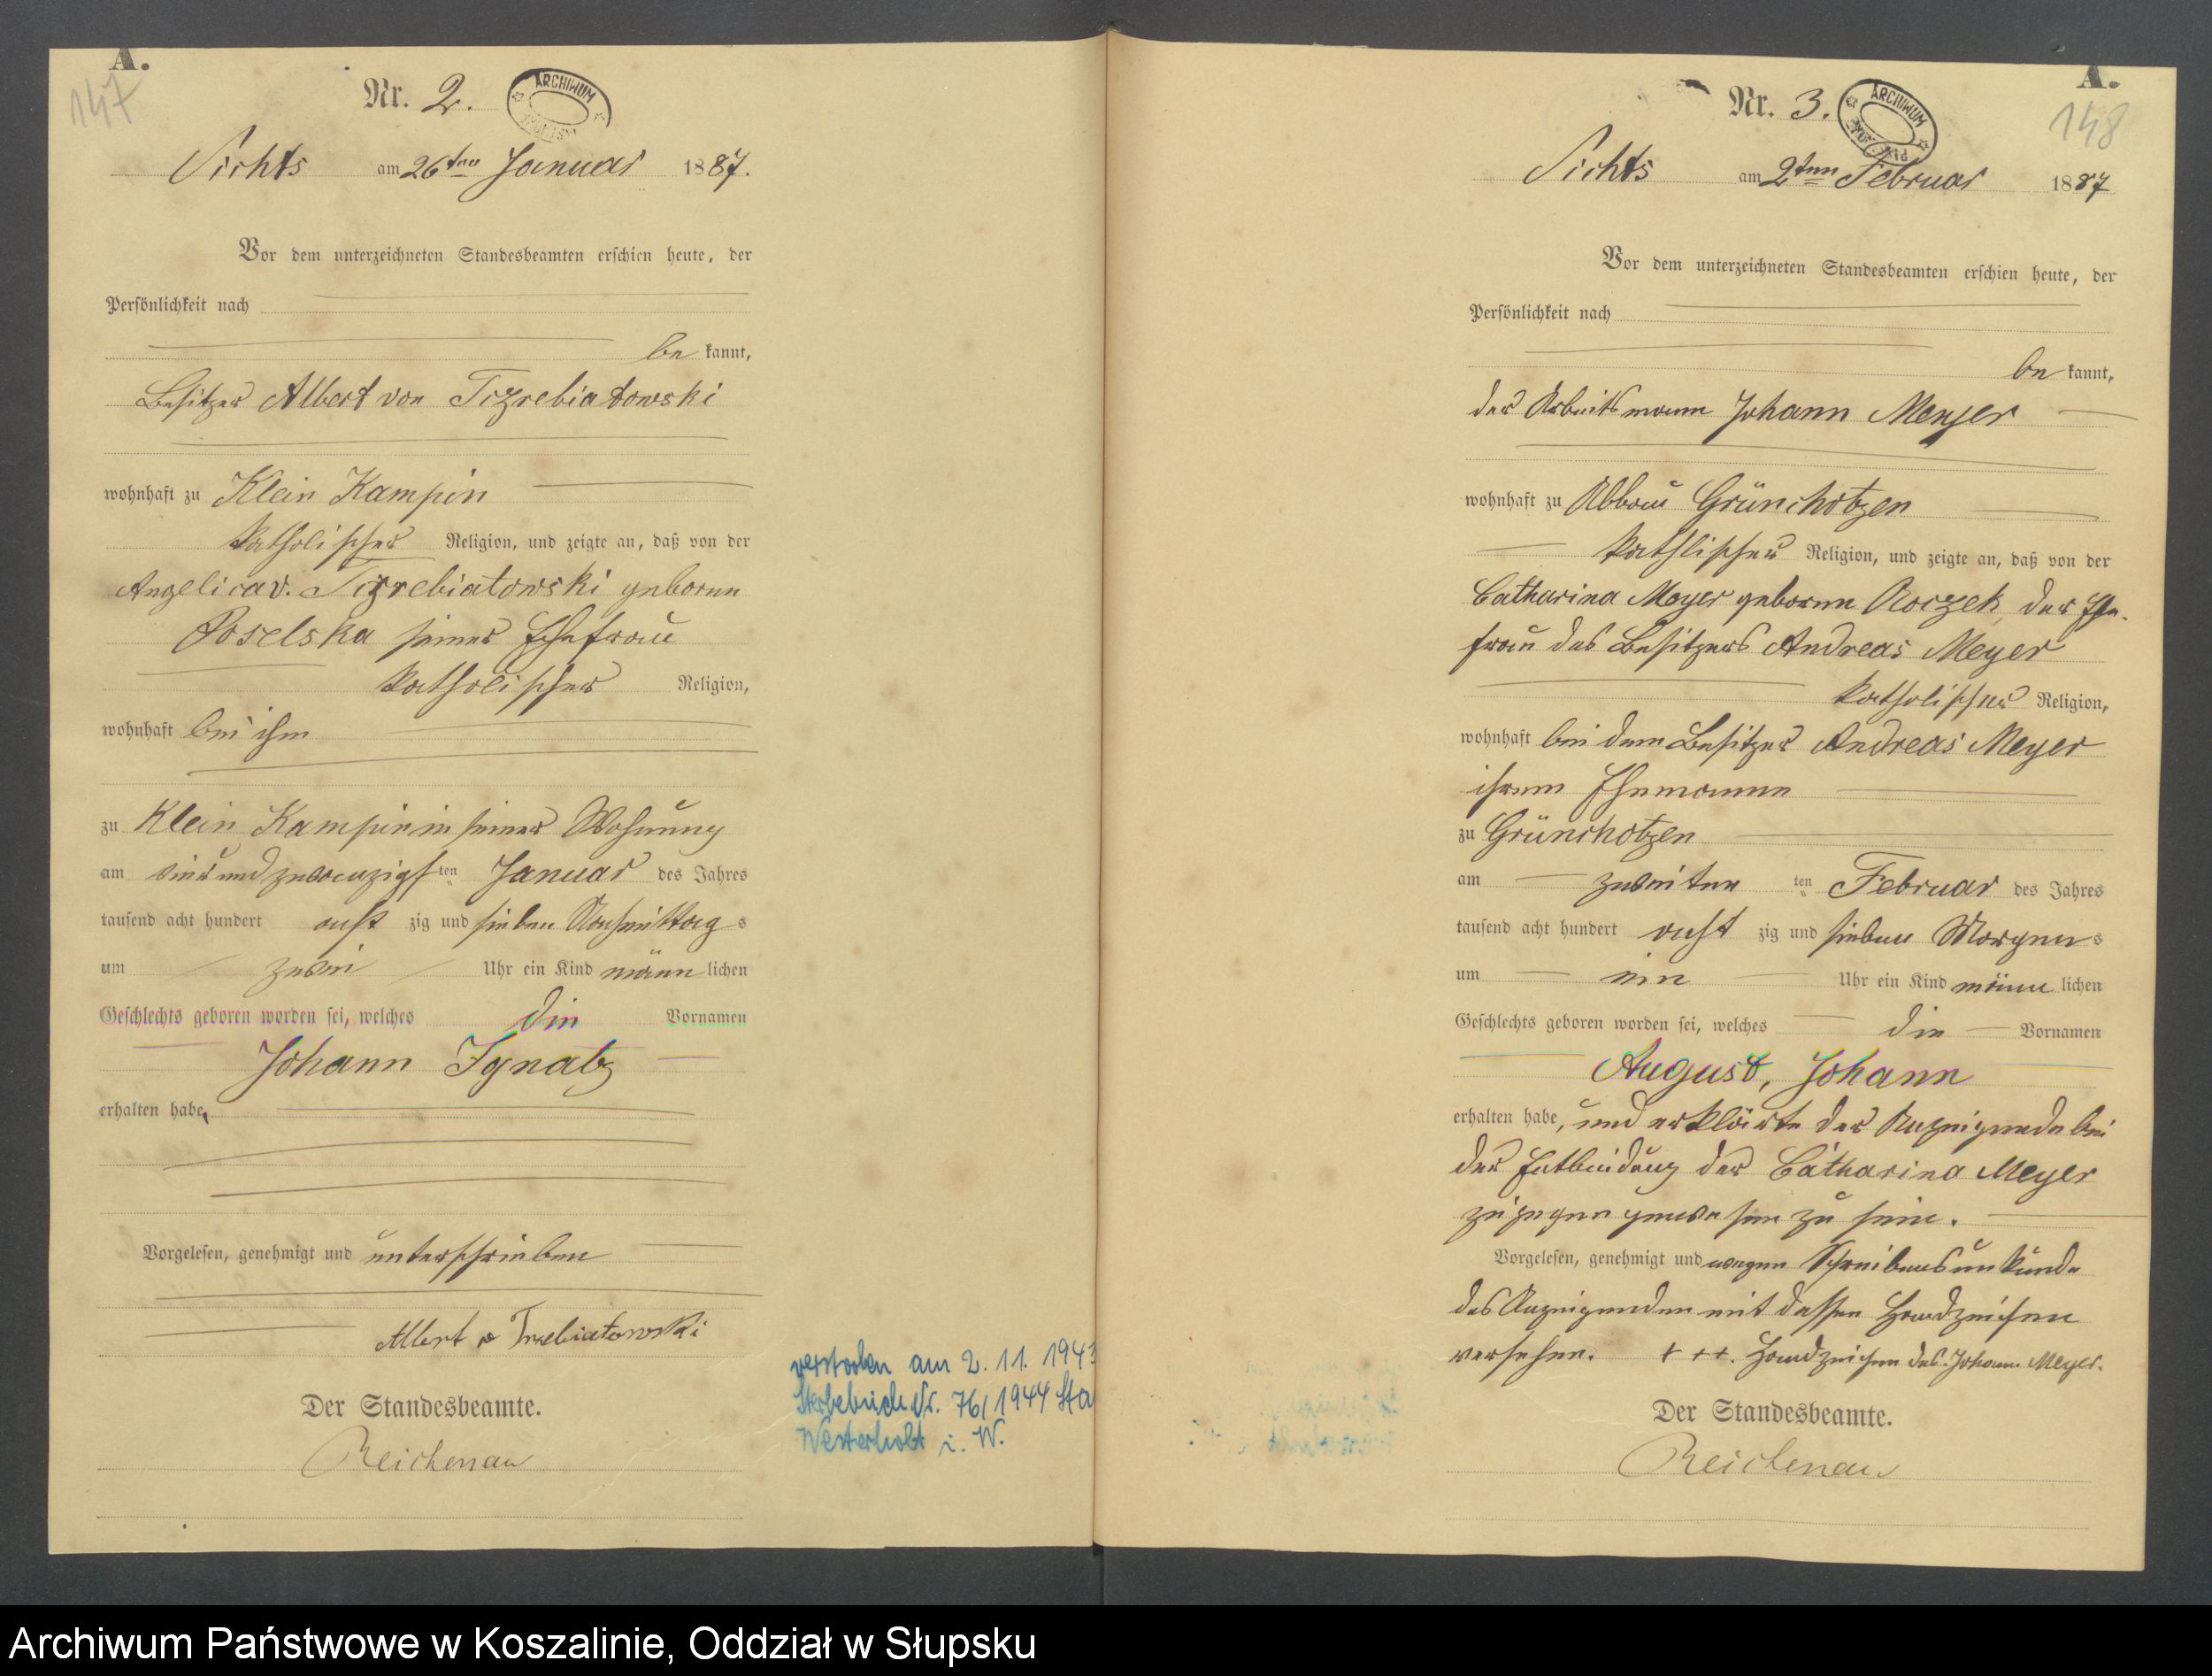 A.
147
Nr. 2.
ARCHIWUM
Sichts am 26ten Januar 1887.
Vor dem unterzeichneten Standesbeamten erschien heute, der
Persönlichkeit nach
be kannt,
Besitzer Albert von Trzebiatowski
wohnhaft zu Klein Kampin
katholischer Religion, und zeigte an, daß von der
Angelica v. Trzebiatowski geborne
Poselska seiner Ehefrau
katholischer Religion,
wohnhaft bei ihm
zu Klein Kampin in seiner Wohnung
am einundzwanzigsten Januar des Jahres
tausend acht hundert acht zig und sieben Nachmittag s
um zwei Uhr ein Kind männ lichen
Geschlechts geboren worden sei, welches die Vornamen
Johann Ignatz
erhalten habe,
Vorgelesen, genehmigt und unterschrieben
Albert v Trzebiatowski
Der Standesbeamte.
Reichenau
verstorben am 2. 11. 1943
Sterbebuch Nr. 76/1944 Sta
Westerholt i. W.
A.
148
Nr. 3.
ARCHIWUM
Sichts am 2ten Februar 1887
Vor dem unterzeichneten Standesbeamten erschien heute, der
Persönlichkeit nach
be kannt,
der Arbeitsmann Johann Meyer
wohnhaft zu Abbau Grünchotzen
kathlischer Religion, und zeigte an, daß von der
Catharina Meyer geborne Roczek, der Ehe-
frau des Besitzers Andreas Meyer
katholischer Religion,
wohnhaft bei dem Besitzer Andreas Meyer
ihrem Ehemanne
zu Grünchotzen
am zweiten ten Februar des Jahres
tausend acht hundert acht zig und sieben Morgens s
um ein Uhr ein Kind männ lichen
Geschlechts geboren worden sei, welches die Vornamen
August, Johann
erhalten habe, und erklärte der Anzeigende bei
der Entbindung der Catharina Meyer
zugegen gewesen zu sein.
Vorgelesen, genehmigt und wegen Schreibensunkunde
des Anzeigenden mit dessen Handzeichen
versehen. + ++. Handzeichen des Johann Meyer.
Der Standesbeamte.
Reichenau
Archiwum Państwowe w Koszalinie, Oddział w Słupsku